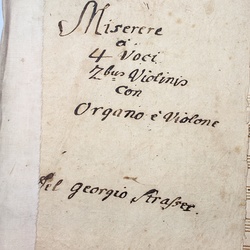 Miserere
a
4 Voci
2bus Violinis
Con
Organo è Violone
Del georgio Strasser.